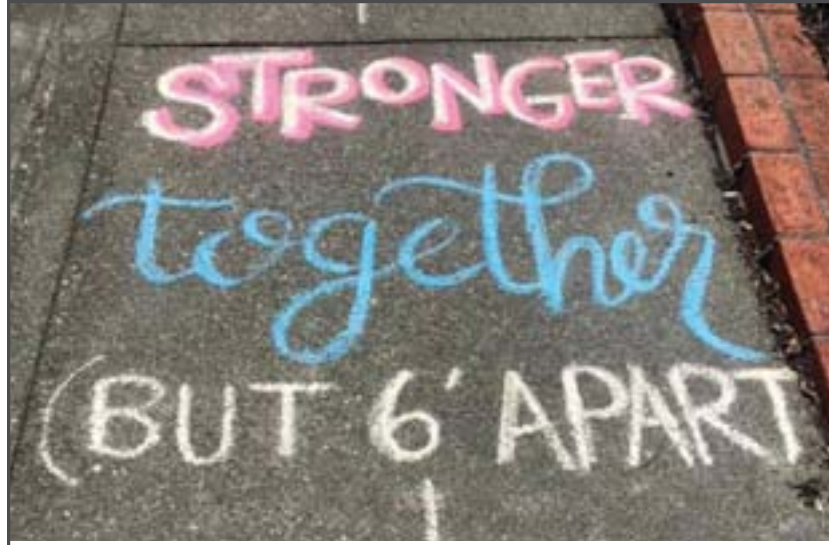 STRONGER
together
(BUT 6' APART